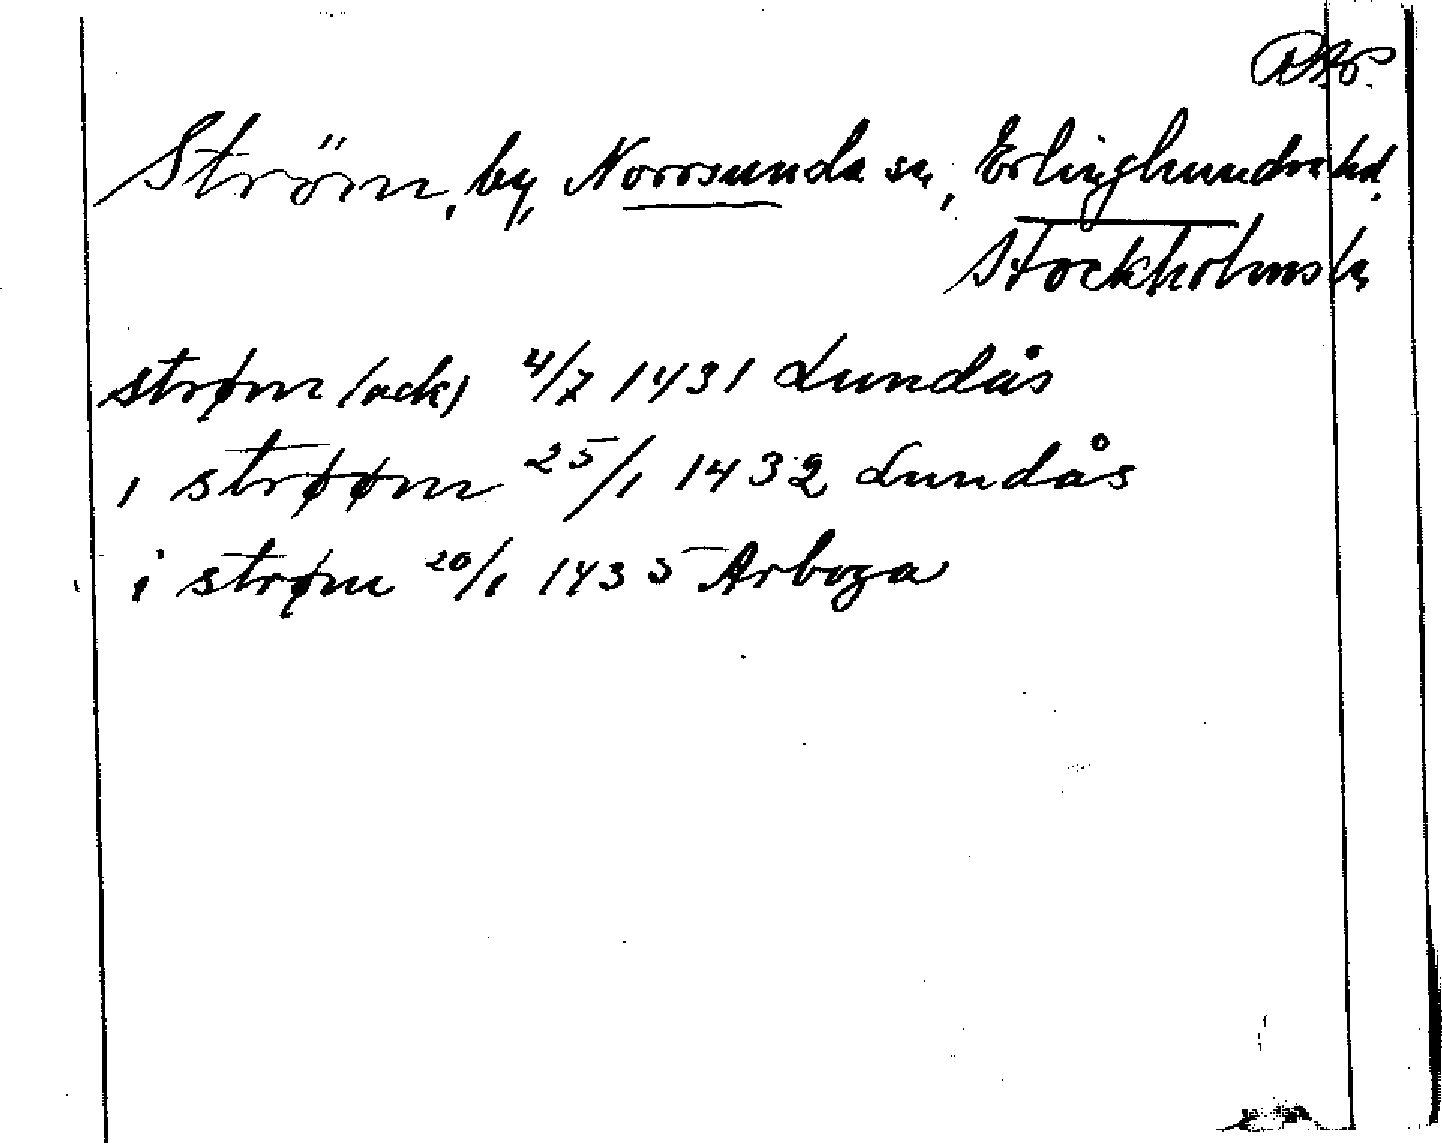 Ström, by, Norrsunda sn, Erlinghundra hd.
Stockholms l.
strøm (ack) 4/7 1431 Lundås
i strøøm 25/1 1432 Lundås
i strøm 20/1 1435 Arboga